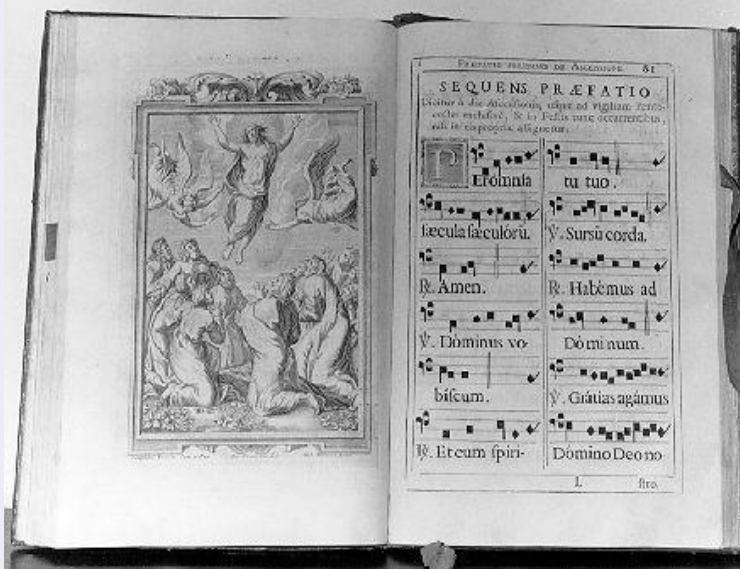 PRÆFATIO SOLEMNIS DE ASCENSIONE. 81
SEQUENS PRÆFATIO
Dicitur à die Ascensionis, usque ad vigiliam Pente-
costes exclusivè, & in Festis tunc occurrentibus,
nisi in eis propria assignetur.
PEr omnia
sæcula sæculórũ.
℟. Amen.
℣. Dóminus vo-
biscum.
℟. Et cum spíri-
tu tuo.
℣. Sursũ corda.
℟. Habémus ad
Dóminum.
℣. Grátias agámus
Dómino Deo no-
L stro,